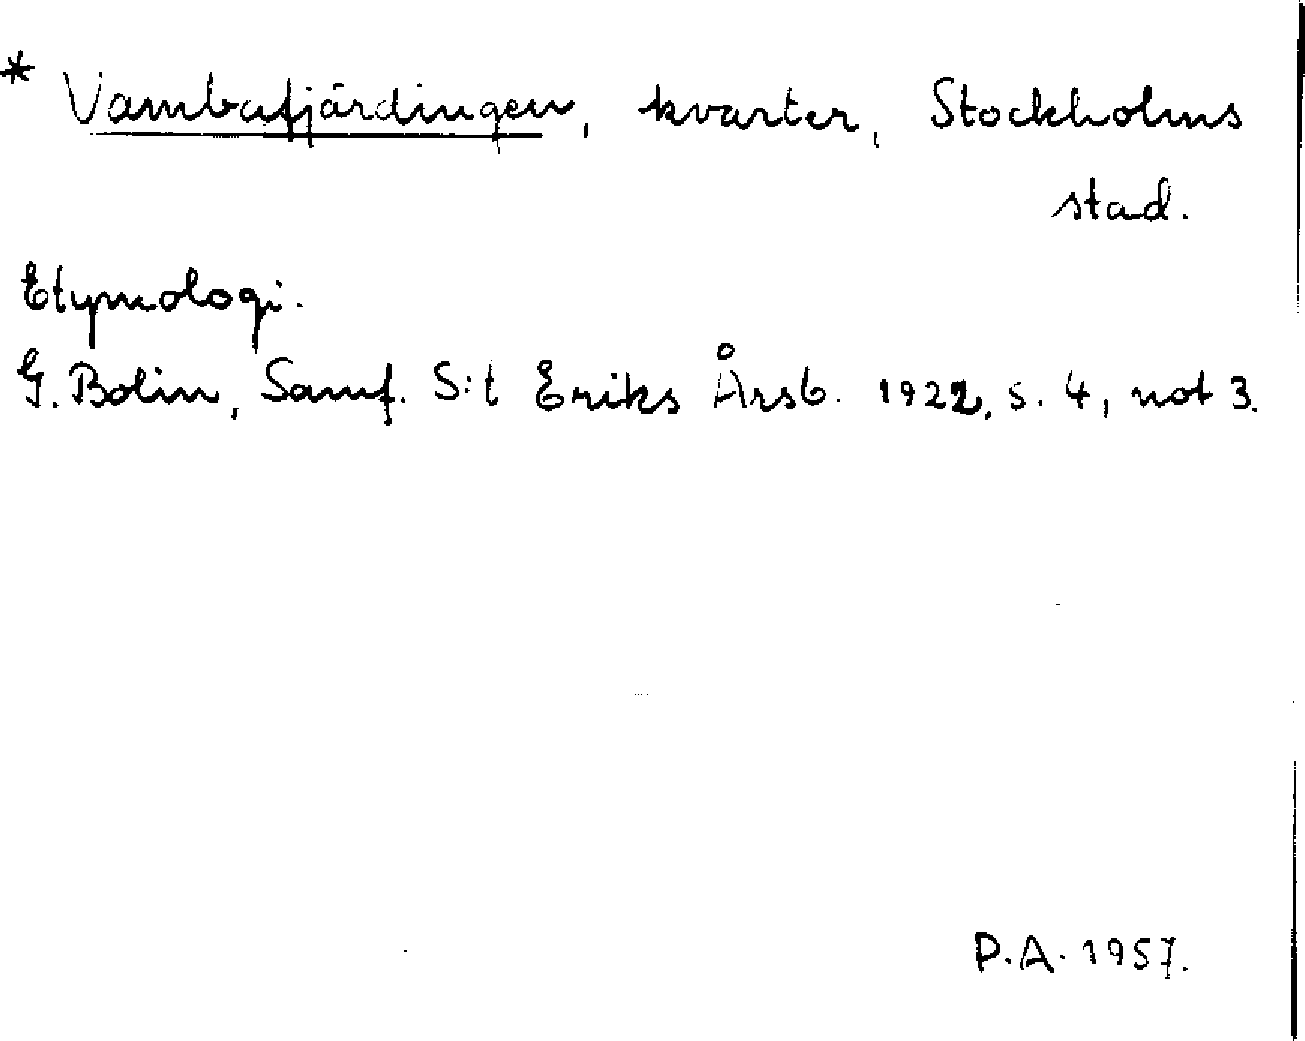 * Vambafjärdingen, kvarter, Stockholms
stad.
Etymologi.
G. Bolin, Samf. S:t Eriks Årsb. 1922, s. 4, not 3.
P.A. 1957.